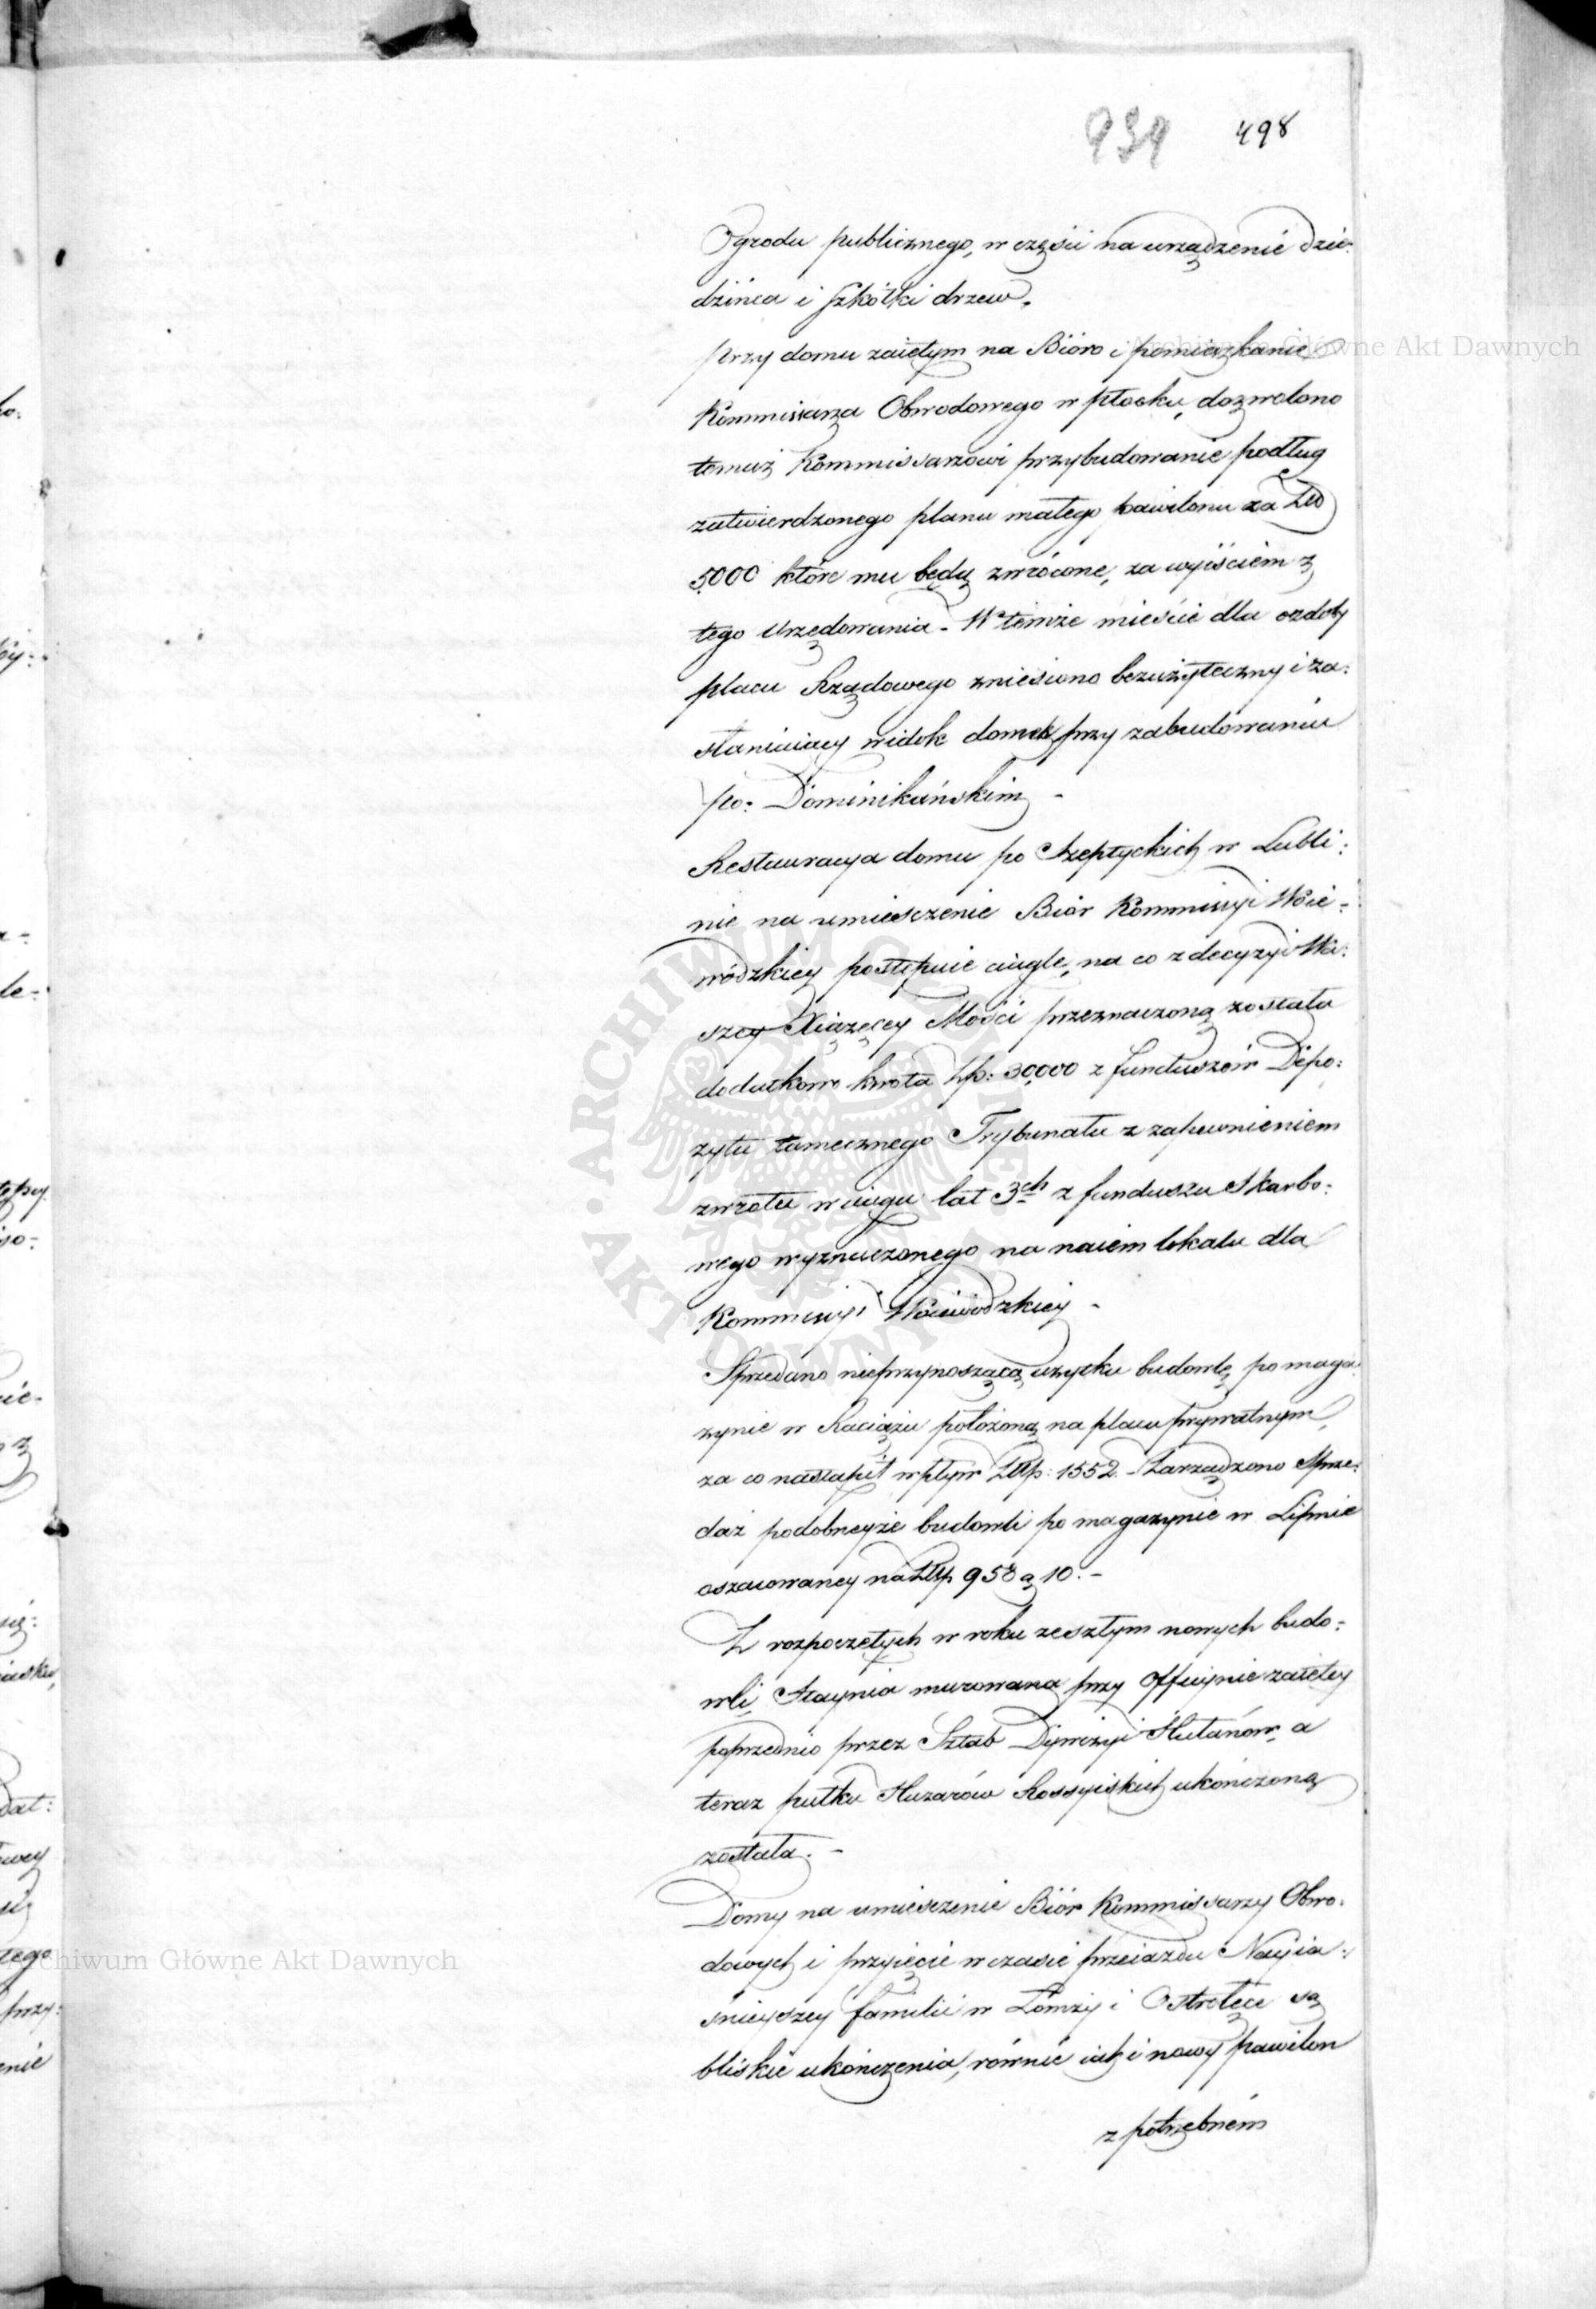 939 498
Ogrodu publicznego, w części na urządzenie dzie:
dzińca i szkółki drzew.
Przy domu zaiętym na Bióro i pomieszkanie
Kommissarza Obwodowego w Płocku, dozwolono
temuż Kommissarzowi przybudowanie podług
zatwierdzonego planu małego pawilonu za
5000 które mu będą zwrócone, za wyiściem z
tego Urzędowania - W temże mieście dla ozdoby
placu Rządowego zniesiono bezużyteczny i za:
słaniaiący widok domek przy zabudowaniu
po: Dominikańskim -
Restauracya domu po Szeptyckich w Lubli:
nie na umieszczenie Biór Kommissyi Woie:
wódzkiey postępuie ciągle, na co z decyzyi Wa:
szey Xiążęcey Mości przeznaczoną została
dodatkowo kwota Złp: 30,000 z funduszów Depo:
zytu tamecznego Trybunału z zapewnieniem
zwrotu w ciągu lat 3ch z funduszu Skarbo:
wego wyznaczonego na naiem lokalu dla
Kommissyi Woiewódzkiey -
Sprzedano nieprzynoszącą użytku budowlę po maga
zynie w Raciążu położoną na placu prywatnym,
za co nastąpił wpływ Złp: 1552. - Zarządzono Sprze:
daż podobneyże budowli po magazynie w Lipnie
oszacowaney na Złp 958 g 10. -
Z rozpoczętych w roku zeszłym nowych budo:
wli, Staynia murowana przy Officynie zaiętey
poprzednio przez Sztab Dywizyi Hułanów, a
teraz pułku Huzarów Rossyiskich ukończoną
została. -
Domy na umieszczenie Biór Kommissarzy Obwo:
dowych i przyięcie w czasie przeiazdu Nayia:
śnieyszey familii w Łomży i Ostrołęce są
bliskie ukończenia, równie iak i nowy pawilon
z potrzebnem
Archiwum Główne Akt Dawnych
Archiwum Główne Akt Dawnych
ARCHIWUM GŁÓWNE AKT DAWNYCH